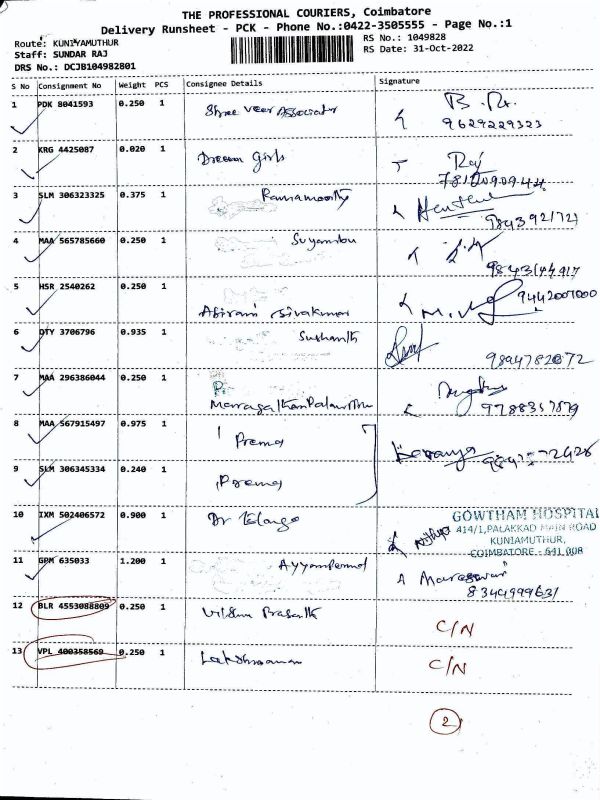 THE PROFESSIONAL COURIERS, Coimbatore
Delivery Runsheet - PCK - Phone No.:0422-3505555 - Page No.:1
Route: KUNIYAMUTHUR
Staff: SUNDAR RAJ
DRS No.: DCJB104982801
RS No.: 1049828
RS Date: 31-Oct-2022
S No Consignment No Weight PCS Consignee Details Signature
1 PDK 8041593 0.250 1 Shree Veer Associates B.
9629229323
2 KRG 4425087 0.020 1 Dream Girls Raj
7812090944
3 SLM 306323325 0.375 1 Ramamoorthy
9843921721
4 MAA 565785660 0.250 1 Suyambu
9843144917
5 HSR 2540262 0.250 1 Abirami Sivakumar
9442007000
6 DTY 3706796 0.935 1 Sushanth
9894782072
7 MAA 296386044 0.250 1
9788357879
8 MAA 567915497 0.975 1 Prema
9 SLM 306345334 0.240 1 Prema
10 IXM 502406572 0.900 1 Dr Elango
Nithya
GOWTHAM HOSPITAL
414/1,PALAKKAD MAIN ROAD
KUNIAMUTHUR,
COIMBATORE - 641 008
11 GPM 635033 1.200 1 Ayyamperumal
8344999631
12 BLR 4553088809 0.250 1 Vishnu Prasath C/N
13 VPL 400358569 0.250 1 Lakshmanan C/N
2